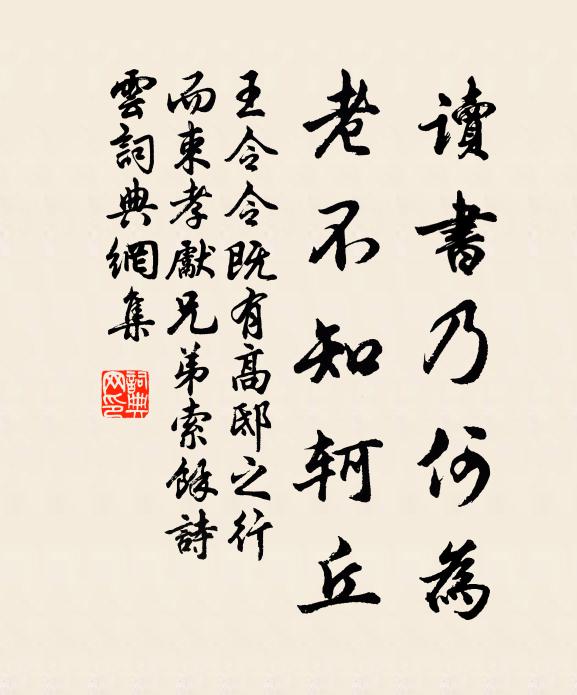 讀書乃何為
老不知軻丘
王令令既有高郵之行
而束孝獻兄弟索餘詩
雲詞典網集
詞典
网印